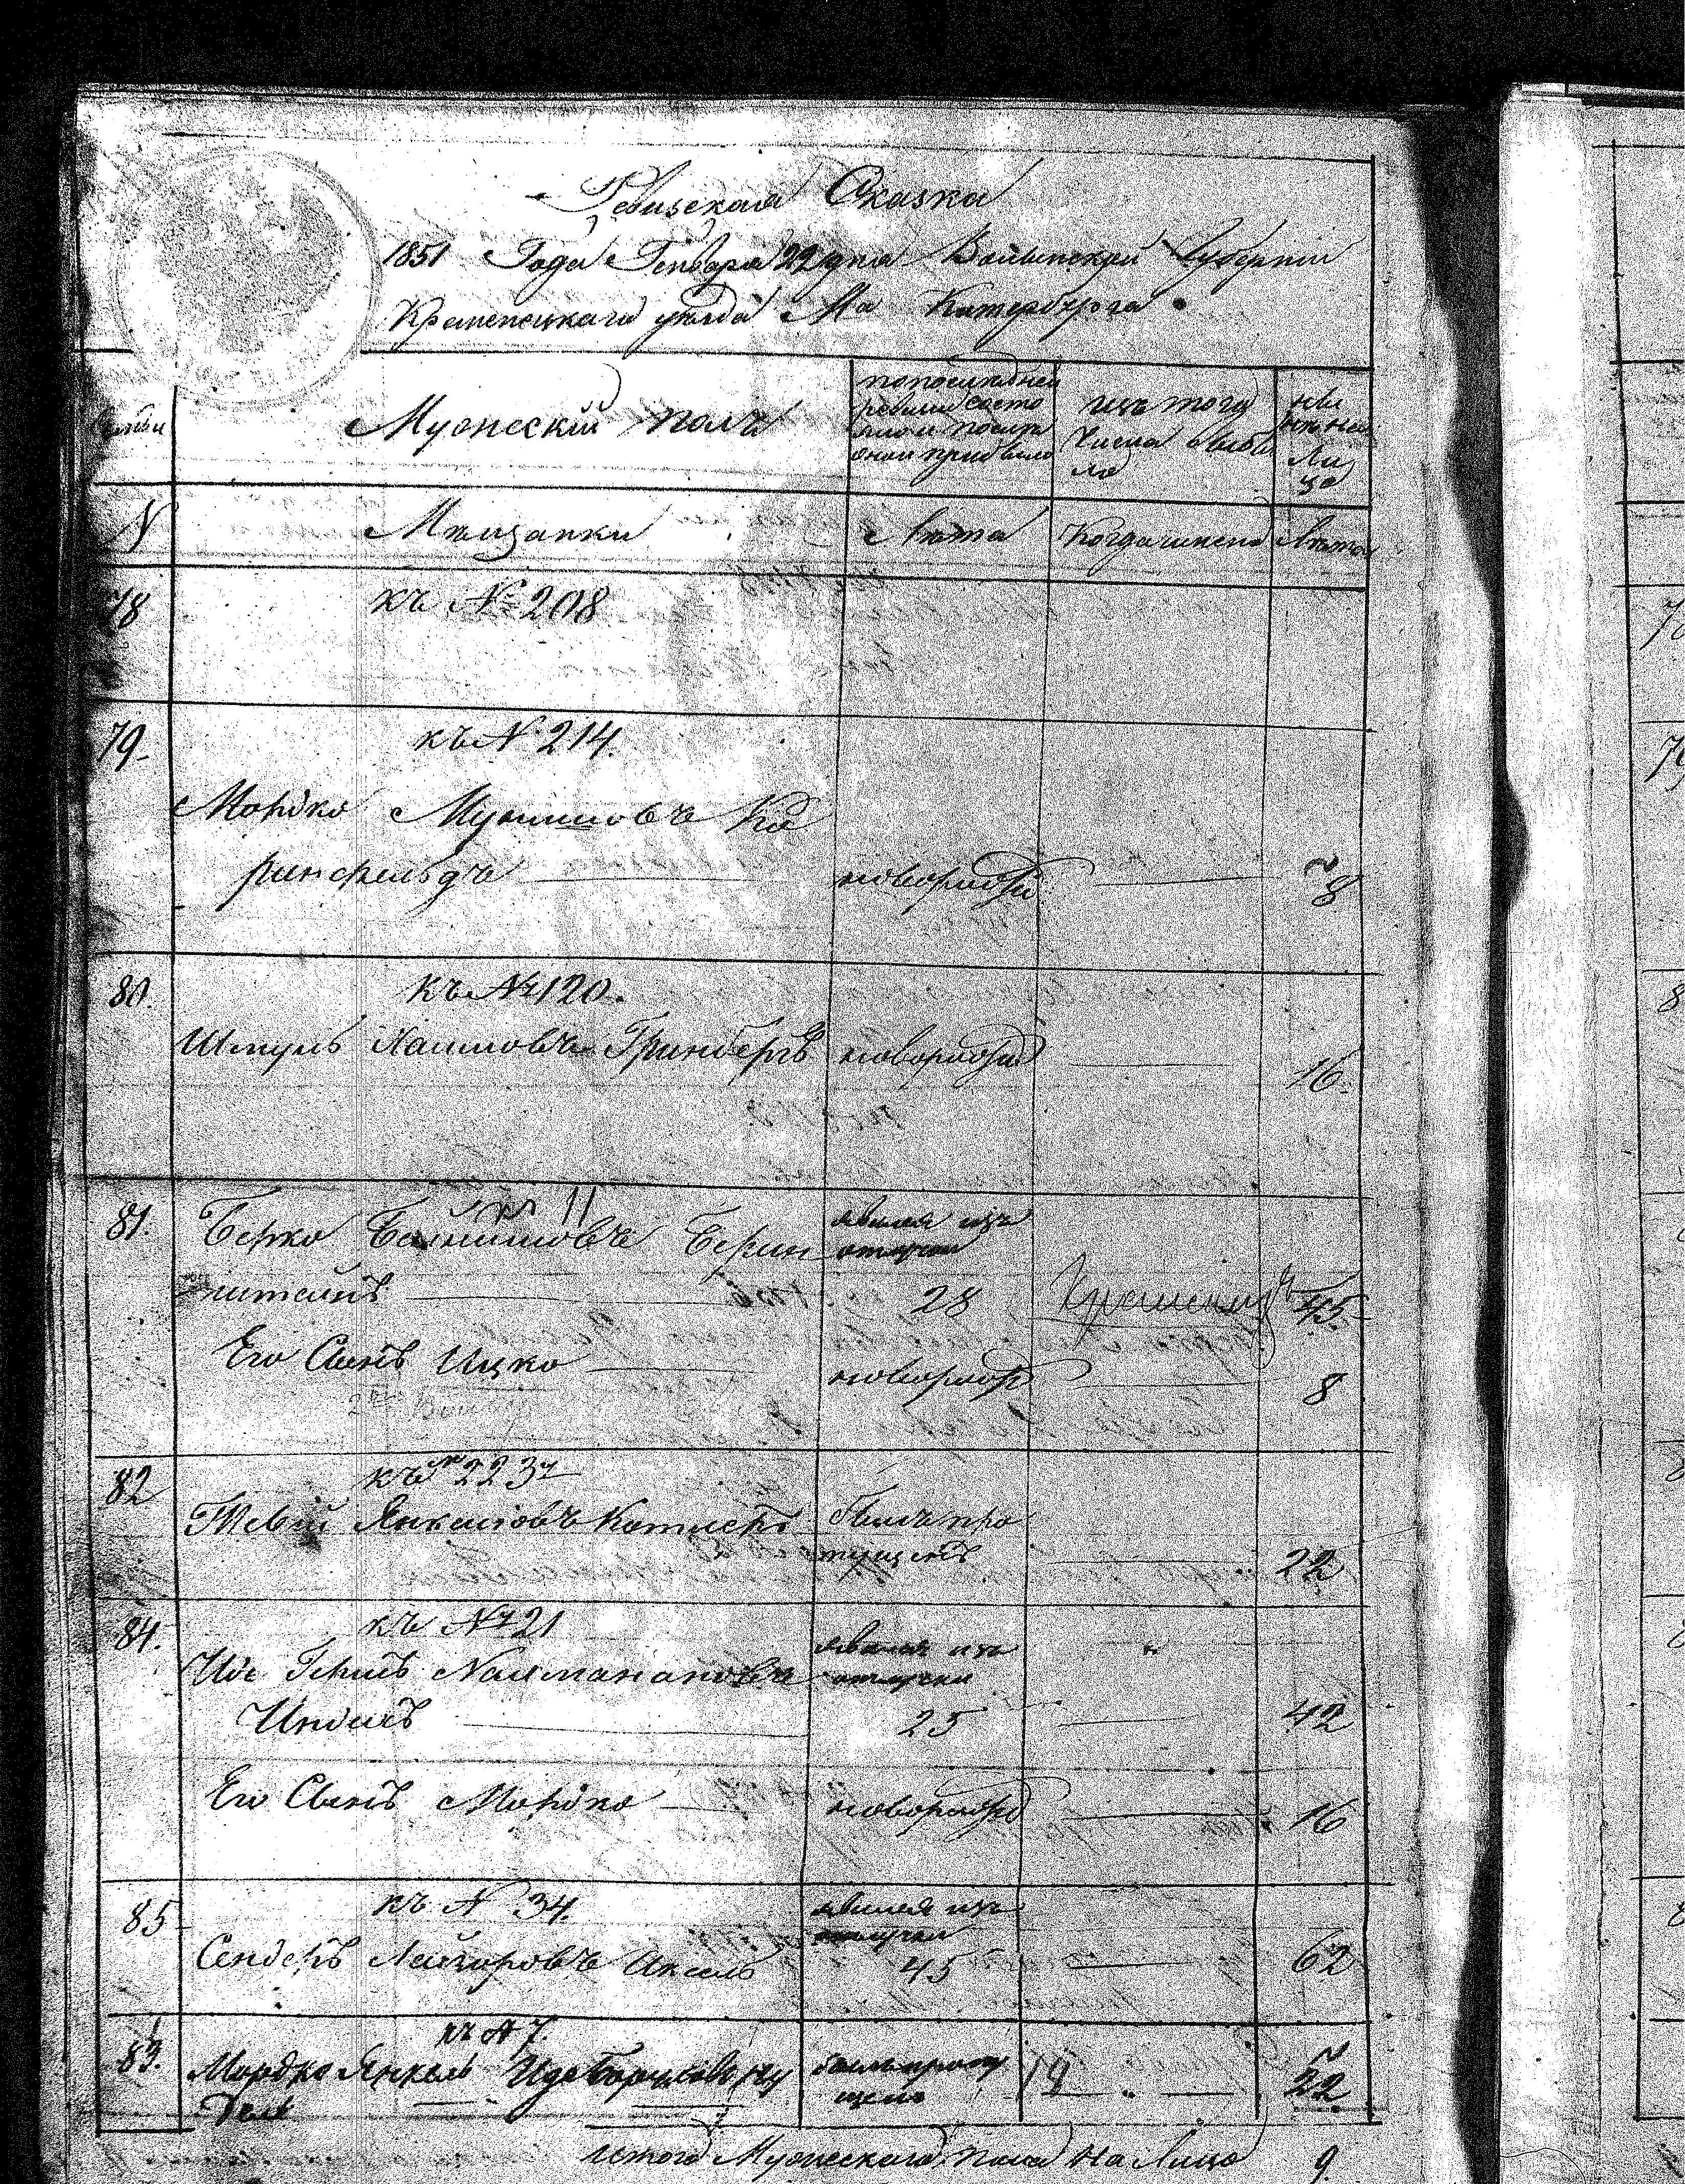 Ревизская Сказка
1851 Года Генваря 22 дня Волынской Губернии
Кременецкаго уезда М. Катербурга
Семьи
Мужескій полъ
попоследней
ревизіи состо
яло и после
оной прибыло
изъ того
числа выбы
ло
ны
не на
ли
цо
N
Мещанки
Лета
Когда именно
Лета
78
къ № 208
79
къ N 214.
Мордко Мунишовъ Ко
ринфельдъ
новорожд
8
80.
къ № 120.
Шмуль Хаимовъ Гринбергъ
новорожд
16
81.
къ 11
Берко Бейнишовъ Берин
штейнъ
явился изъ
отлучки
28
45
Его Сынъ Ицко
новорожд
8
82
къ № 223
Тевій Янкелiовъ Котлеръ
былъ про
пущенъ
22
84.
къ № 21
Иос Гершъ Налмановичъ
Индикъ
явился изъ
отлучки
25
42
Его Сынъ Мордко
новорожд
16
85
къ N 34.
Сендеръ Лейзоровъ Аксель
явился изъ
отлучки
45
62
83.
къ N 7.
Мордко Янкель Иде Борухово
былъ пропу
щенъ
18
22
итого Мужескаго пола на лицо
9